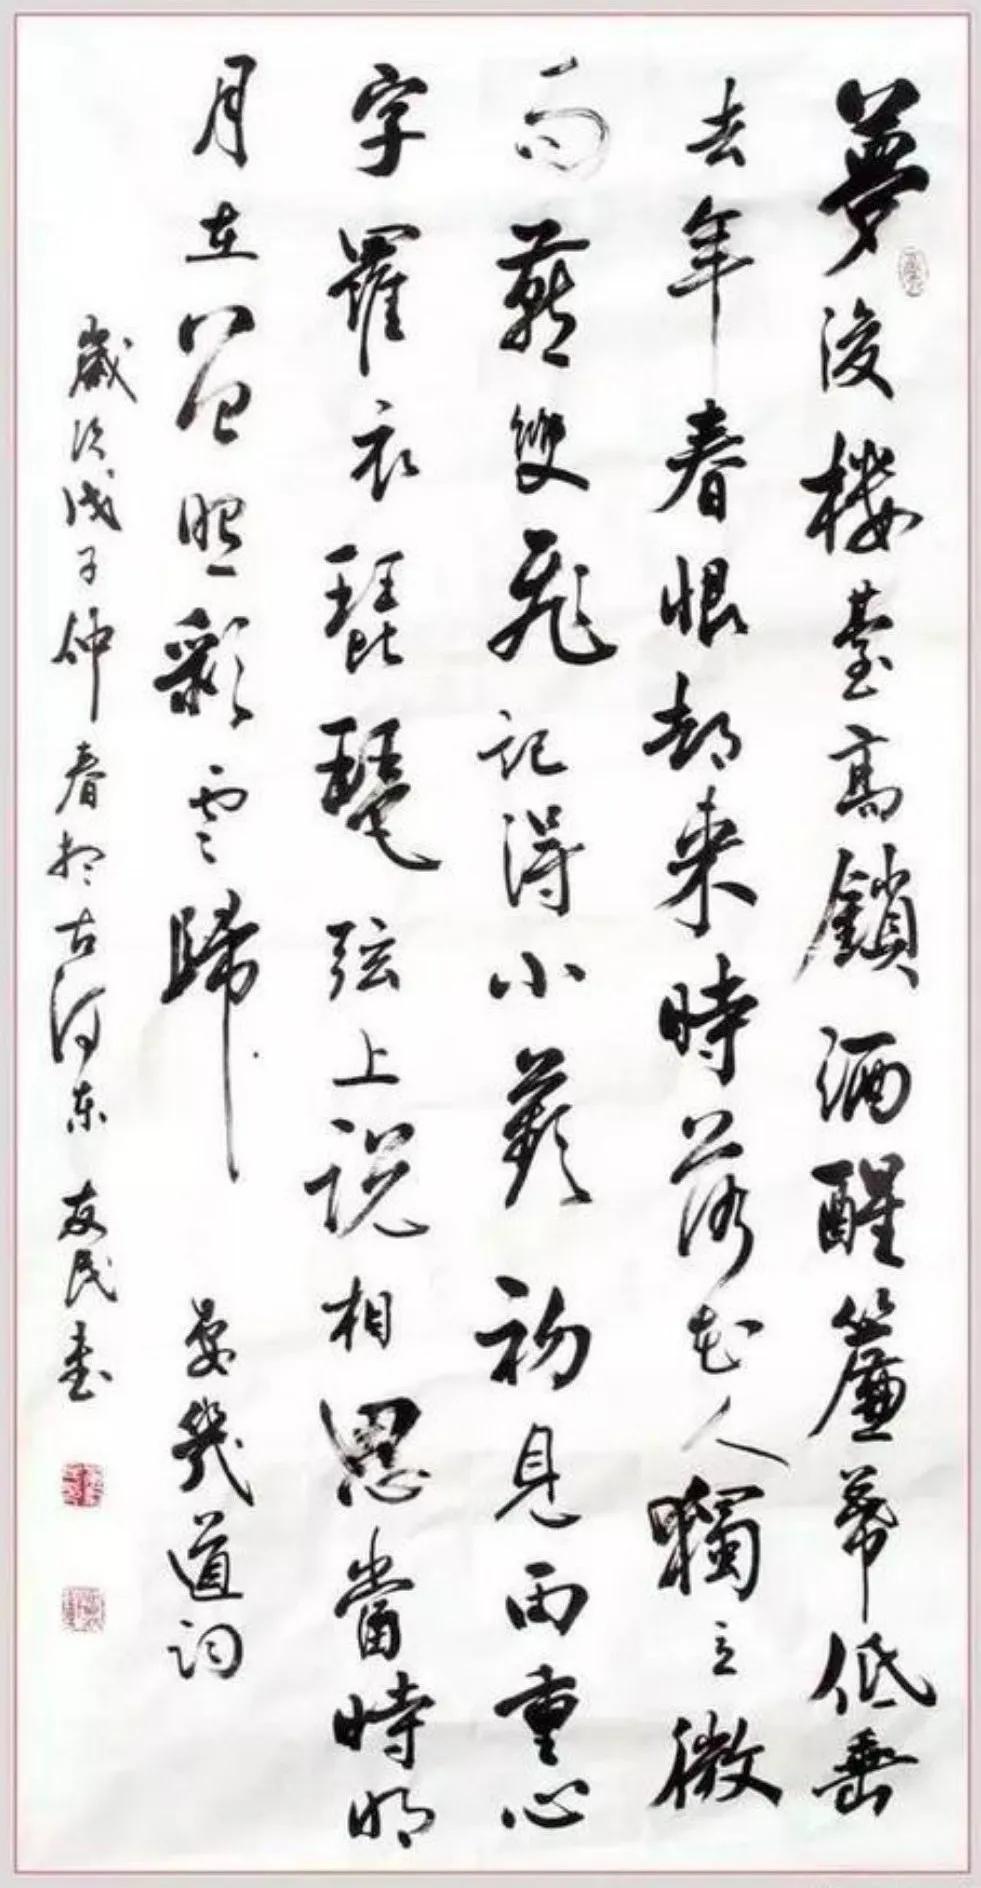 夢後樓臺高鎖酒醒簾幕低垂
去年春恨却来時落花人獨立微
雨燕雙飛記得小蘋初見两重心
字羅衣琵琶弦上説相思當時明
月在曽照彩雲歸 晏幾道词
歲次戊子仲春於古河东友民书